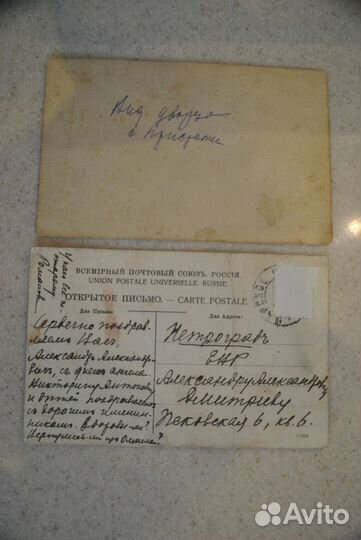 Вид дворца
с
ВСЕМІРНЫЙ ПОЧТОВЫЙ СОЮЗЪ. РОССІЯ.
UNION POSTALE UNIVERSELLE. RUSSIE.
ОТКРЫТОЕ ПИСЬМО. — CARTE POSTALE.
Для Письма:
Для Адреса:
Сердечно поздрав-
ляемъ Васъ,
Александръ Александро-
вичъ, съ днемъ ангела
Викторину Антоновну
и дѣтей поздравляемъ
съ дорогимъ именин-
никомъ. Здоровы-ли?
Петроградъ
ЕВР
Александру Александровичу
Дмитріеву
Псковская 6, кв. 6.
Avito